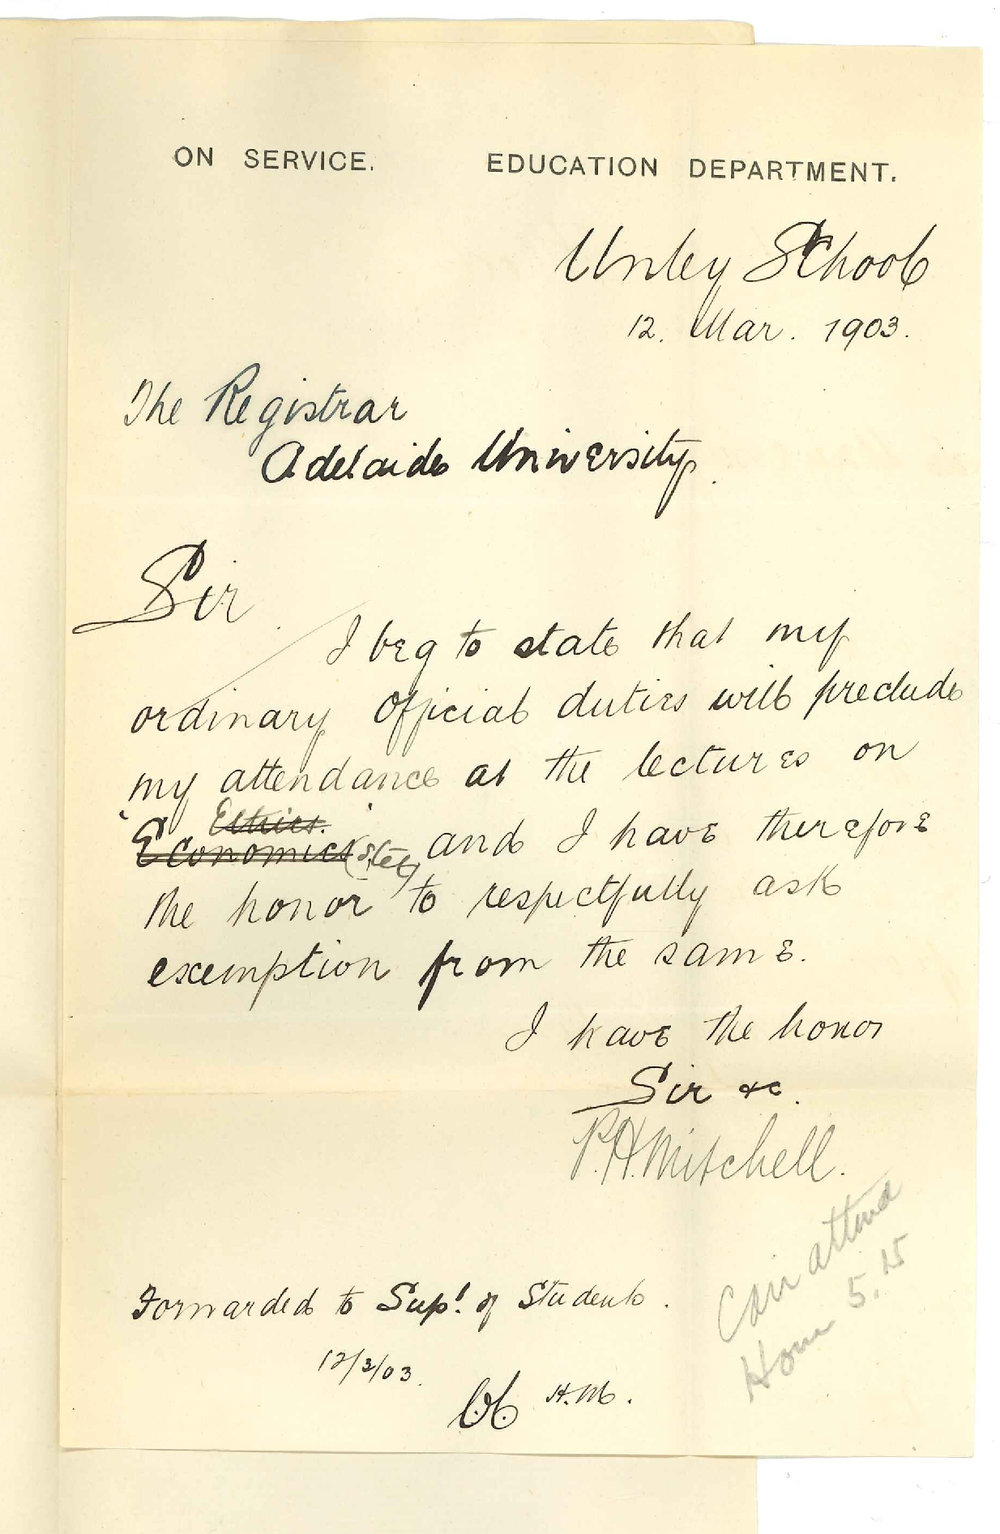 ON SERVICE. EDUCATION DEPARTMENT.
Unley School
12. Mar. 1903.
The Registrar
Adelaide University.
Sir
I beg to state that my
ordinary official duties will preclude
my attendance at the lectures on
Ethics.
Economics and I have therefore
the honor to respectfully ask
exemption from the same.
I have the honor
Sir &c.
P.H. Mitchell.
Can attend
Hour 5.15
Forwarded to Supt. of Students.
12/3/03.
H.M.